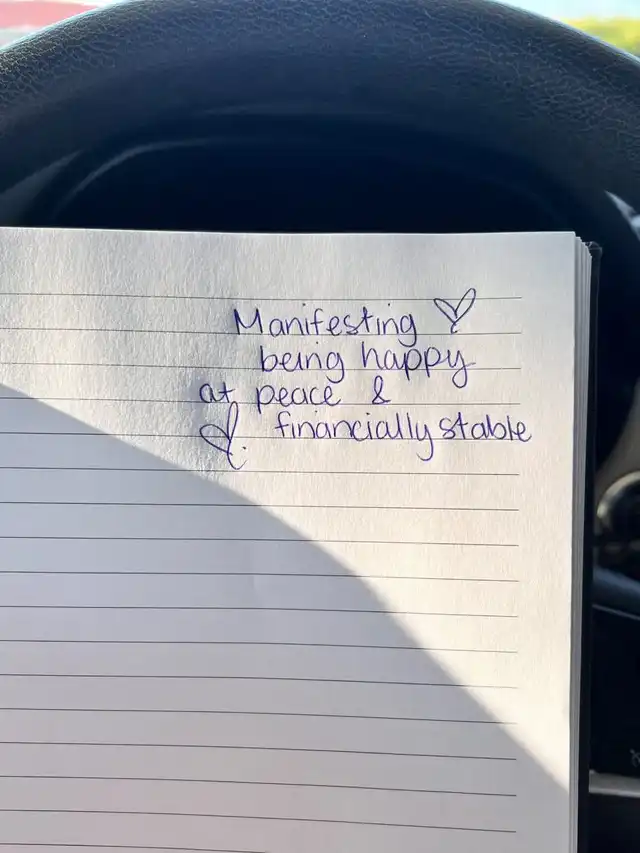 Manifesting
being happy
at peace &
financially stable